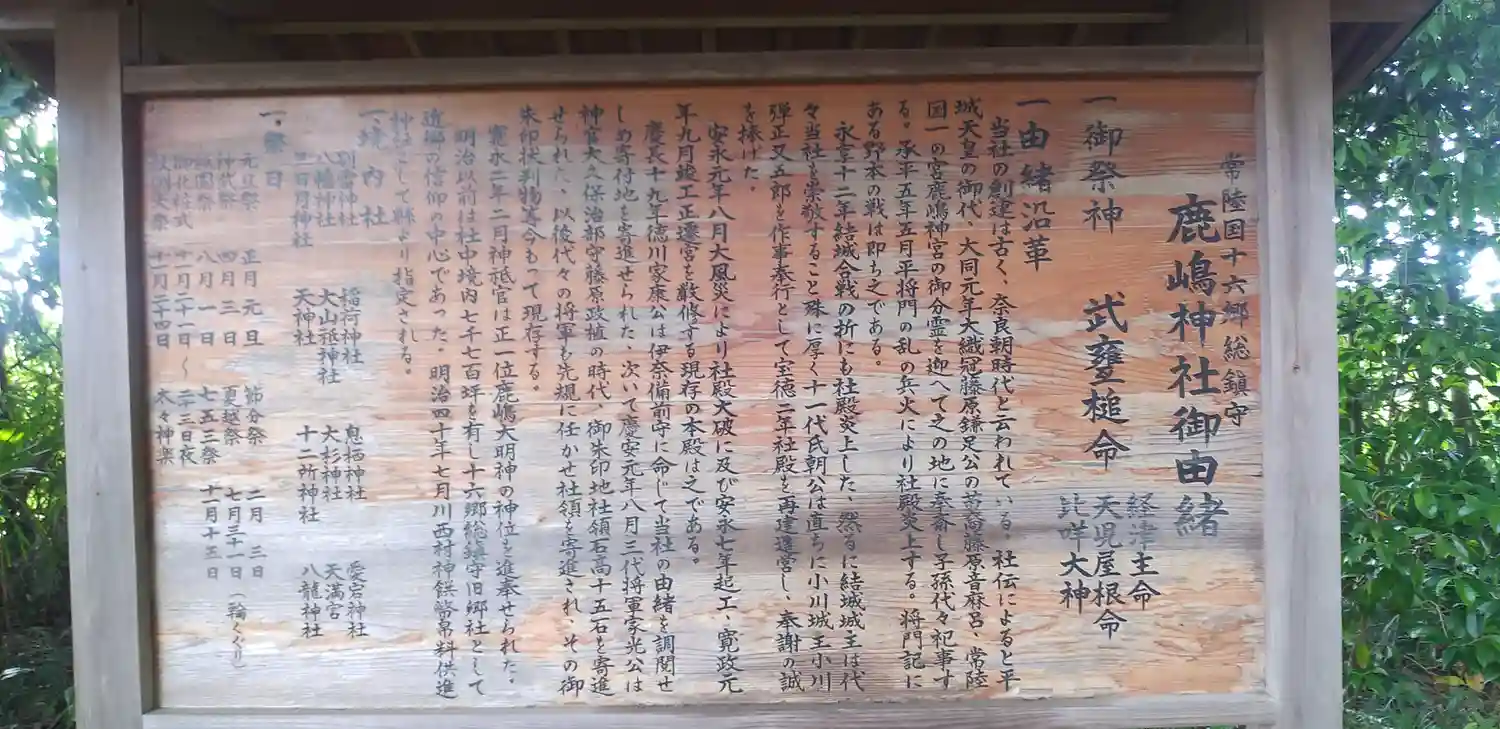 常陸国十六郷総鎮守
鹿嶋神社御由緒
一御祭神 武甕槌命
経津主命
天児屋根命
比咩大神
一由緒沿革
当社の創建は古く、奈良朝時代と云われている。社伝によると平
城天皇の御代、大同元年大織冠藤原鎌足公の苗裔藤原音麻呂、常陸
国一の宮鹿嶋神宮の御分霊を迎へて之の地に奉斎し子孫代々祀事す
る。承平五年五月平将門の乱の兵火により社殿炎上する。将門記に
ある野本の戦は即ち之である。
永享十二年結城合戦の折にも社殿炎上した、然るに結城城主は代
々当社を崇敬すること殊に厚く十一代氏朝公は直ちに小川城主小川
弾正又五郎を作事奉行として宝徳二年社殿を再建造営し、奉謝の誠
を捧げた。
安永元年八月大風災により社殿大破に及び安永七年起工、寛政元
年九月竣工正遷宮を厳修する現存の本殿は之である。
慶長十九年徳川家康公は伊奈備前守に命じて当社の由緒を調閲せ
しめ寄付地を寄進せられた、次いで慶安元年八月三代将軍家光公は
神官大久保治部守藤原政植の時代、御朱印地社領石高十五石を寄進
せられた、以後代々の将軍も先規に任かせ社領を寄進され、その御
朱印状判物等今もって現存する。
寛永二年二月神祗官は正一位鹿嶋大明神の神位を進奉せられた。
明治以前は社中境内七千七百坪を有し十六郷総鎮守旧郷社として
近郷の信仰の中心であった。明治四十年七月川西村神饌幣帛料供進
神社として縣より指定される。
一、境内社
別雷神社 稲荷神社 息栖神社 愛宕神社
八幡神社 大山祗神社 大杉神社 天満宮
三日月神社 天神社 十二所神社 八龍神社
一、祭日
元旦祭 正月元旦 節分祭 二月三日
神武祭 四月三日 夏越祭 七月三十一日（輪くぐり）
祇園祭 八月一日 七五三祭 十一月十五日
御化粧式 十一月二十一日〜二十三日夜
例大祭 十一月二十四日 太々神楽